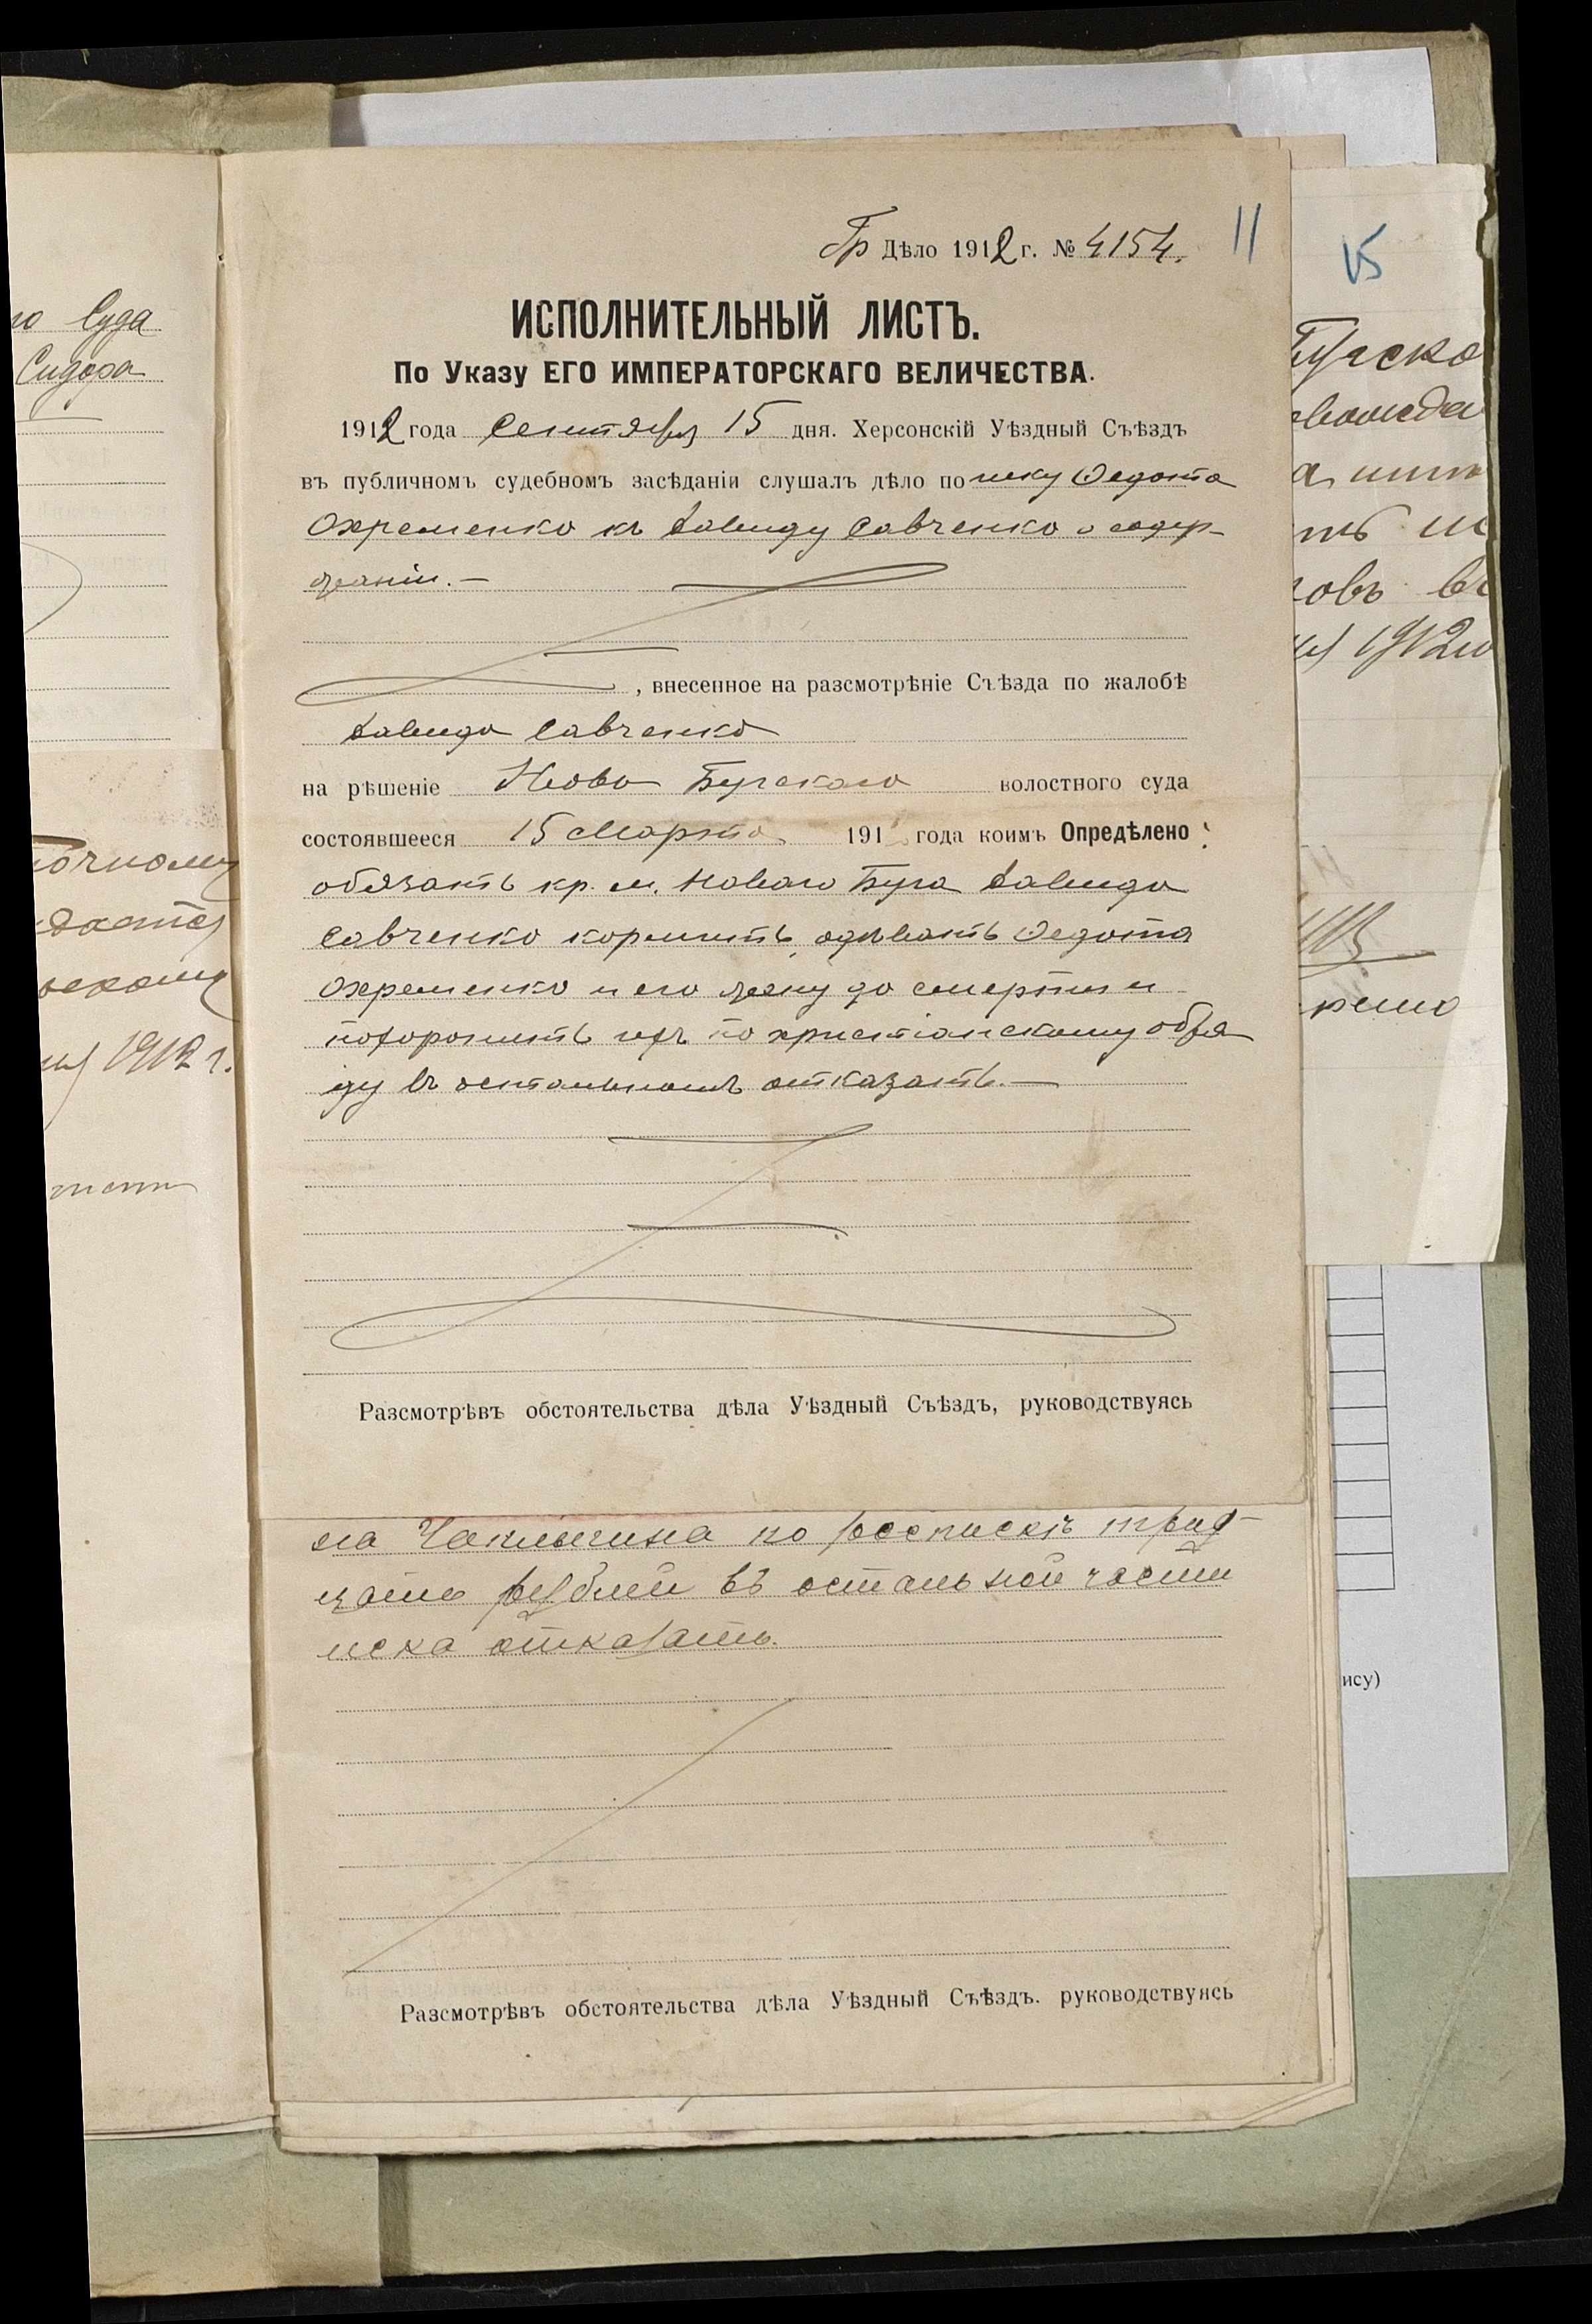 го Суда
Сидора
Гр Дѣло 1912 г. № 4154.
11
15
ИСПОЛНИТЕЛЬНЫЙ ЛИСТЪ.
По Указу ЕГО ИМПЕРАТОРСКАГО ВЕЛИЧЕСТВА.
1912 года Сентября 15 дня. Херсонскій Уѣздный Съѣздъ
въ публичномъ судебномъ засѣданіи слушалъ дѣло по иску Федота
Охременко къ Давиду Савченко о содер-
жаніи.—
, внесенное на разсмотрѣніе Съѣзда по жалобѣ
Давида Савченко
на рѣшеніе Ново Бугскаго волостного суда
состоявшееся 15 Марта 191 года коимъ Опредѣлено:
обязать кр. м. Новаго Буга Давида
Савченко кормить, одѣвать Федота
Охременко и его жену до смерти и
похоронить ихъ по христіанскому обря
ду въ остальномъ отказать.—
Разсмотрѣвъ обстоятельства дѣла Уѣздный Съѣздъ, руководствуясь
по роспискѣ трид-
цать рублей въ остальной части
иска отказать.
Разсмотрѣвъ обстоятельства дѣла Уѣздный Съѣздъ. руководствуясь
1912 г.
овъ въ
1912
ису)